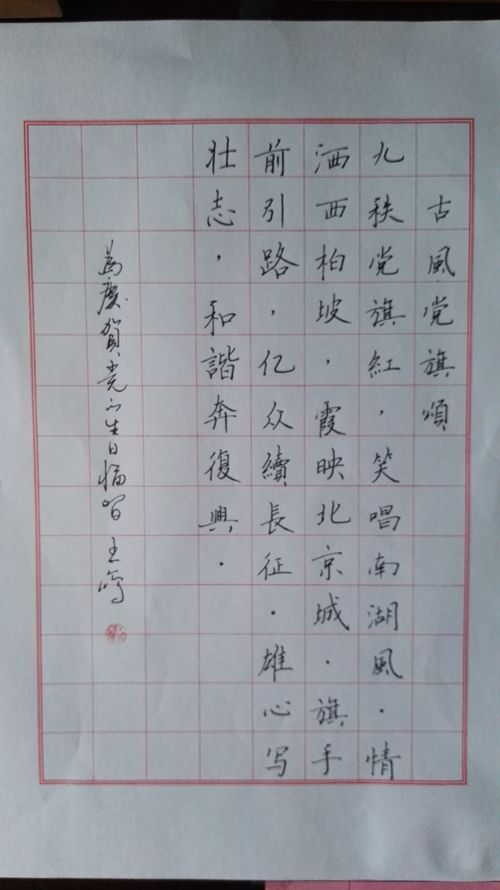 古風党旗頌
九秩党旗紅，笑唱南湖風．情
洒西柏坡，霞映北京城．旗手
前引路，亿众續長征．雄心写
壮志，和諧奔復興．
為慶賀党的生日恼習 王鳴